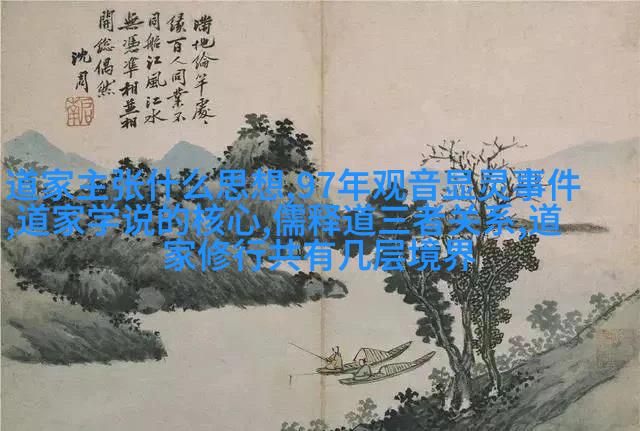 滿地綸竿處々
緣百人同業不
同船江風江水
無憑準相並相
開總偶然
沈周
道家主张什么思想,97年观音显灵事件
,道家学说的核心,儒释道三者关系,道
家修行共有几层境界